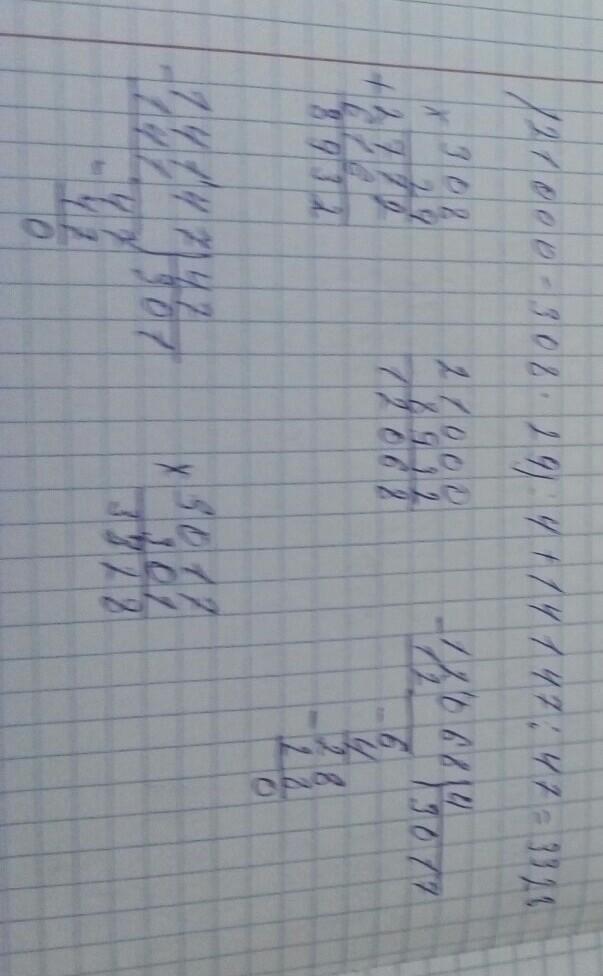 (21000 - 308 · 29) : 4 + 14147 : 47 = 3318
× 308
29
+ 2772
616
8932
21000
8932
12068
- 12068 | 4
12 | 3017
- 6
4
- 28
28
0
- 14147 | 47
141 | 301
- 47
47
0
× 3017
301
3318